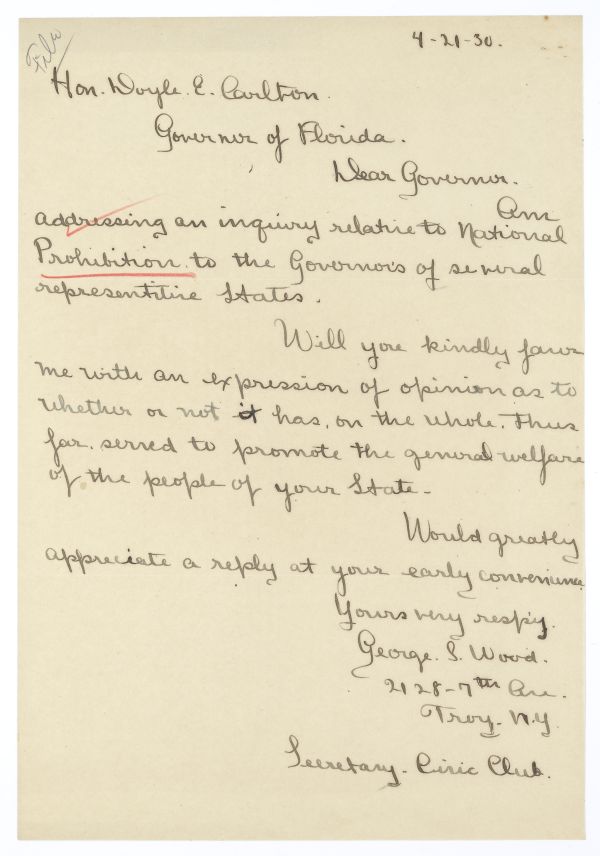 File
4-21-30.
Hon. Doyle. E. Carlton.
Governor of Florida.
Dear Governor.
Am
addressing an inquiry relative to National
Prohibition. to the Governor's of several
representitive States.
Will you kindly favor
me with an expression of opinion as to
whether or not it has, on the whole, thus
far, served to promote the general welfare
of the people of your State-
Would greatly
appreciate a reply at your early convenience
Yours very resp'y.
George. S. Wood.
2128-7th Ave.
Troy. N.Y.
Secretary- Civic Club.